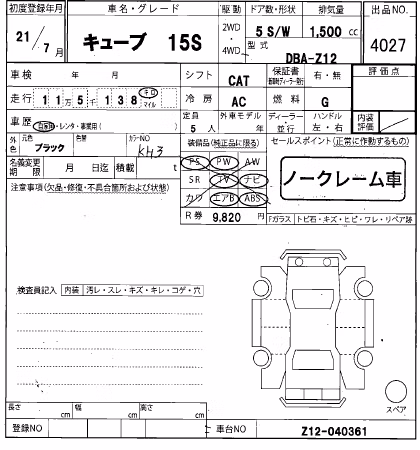 初度登録年月 車名・グレード 駆動 ドア数・形状 排気量 出品NO.
21/7月 キューブ 15S 2WD・4WD 5 S/W 1,500 cc 4027
型式 DBA-Z12
車検 年 月 シフト CAT 保証書 有・無 評価点
走行 11万5千138 キロ マイル 冷房 AC 燃料 G
車歴 自家用・レンタ・事業用( ) 定員 5人 外車モデル 年 ディーラー・並行 ハンドル 左・右 内装評価
外色 元色 ブラック 色替 カラーNO KH3 装備品(純正品に限る) セールスポイント(正常に作動するもの)
名義変更期限 月 日迄 積載 t PS PW AW
注意事項(欠品・修復・不具合箇所および状態) SR TV ナビ ノークレーム車
カワ エアB ABS
R券 9,820 円 Fガラス トビ石・キズ・ヒビ・ワレ・リペア跡
検査員記入 内装 汚レ・スレ・キズ・キレ・コゲ・穴
スペア
長さ cm 幅 cm 高さ cm
登録NO 車台NO Z12-040361